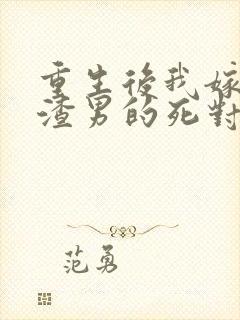 重生後我嫁
渣男的死對
范勇